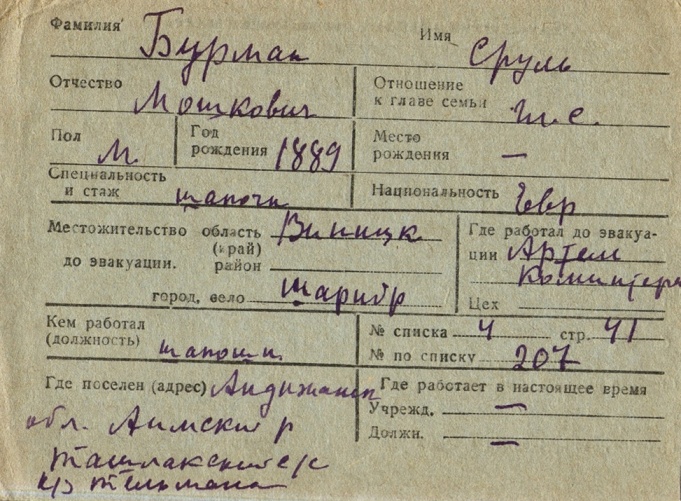 Фамилия Бурман Имя Сруль
Отчество Мошкович Отношение к главе семьи гл. с.
Пол М. Год рождения 1889 Место рождения —
Специальность и стаж шапочн Национальность Евр
Местожительство область Виницк Где работал до эвакуа-
(край) ции Артел
до эвакуации. район Коминтерн
город, село Шаргр Цех
Кем работал (должность) шапошн. № списка 4 стр. 41
№ по списку 207
Где поселен (адрес) Андижанск Где работает в настоящее время
обл. Аимский р Учрежд. —
Ташлакский с/с Должн. —
к/з Тельмана